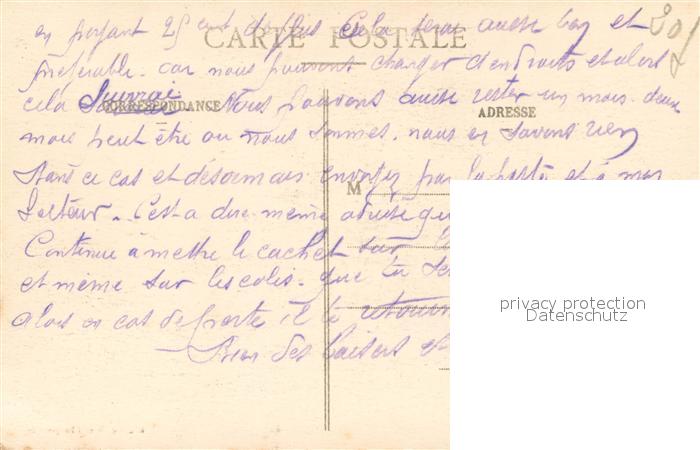 en payant 25 cent de plus Cela sera aussi bon et
CARTE POSTALE
préférable. car nous pouvons changer d'endroits et alors
cela Suivrai Nous pouvons aussi rester un mois. deux
CORRESPONDANCE
ADRESSE
mois peut être ou nous sommes. nous en savons rien
Dans ce cas et désormais envoyez par la poste et à mon
M
Secteur. C'est a dire même adresse
Continue à mettre le cachet sur
et même sur les colis. que tu
alors en cas de perte il le
Bien des baisers et
privacy protection
Datenschutz